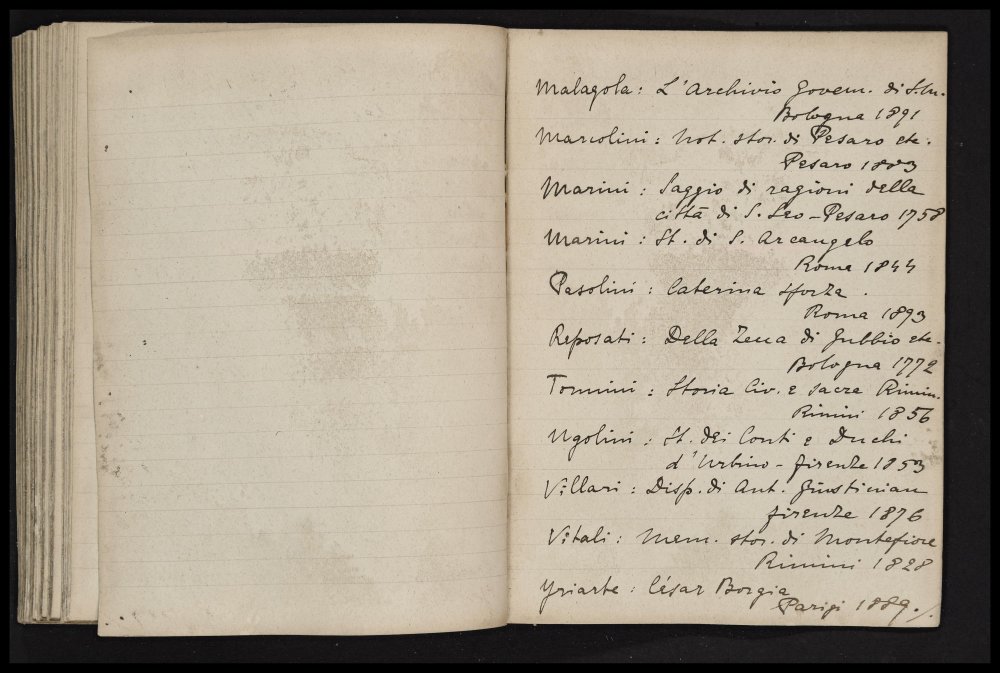 Malagola: L'Archivio Govern. di S. M.
Bologna 1891
Marcolini: Not. stor. di Pesaro etc.
Pesaro 1883
Marini: Saggio di ragioni della
città di S. Leo - Pesaro 1758
Marini: St. di S. Arcangelo
Roma 1844
Pasolini: Caterina Sforza.
Roma 1893
Reposati: Della Zecca di Gubbio etc.
Bologna 1772
Tonnini: Storia Civ. e Sacra Rimin.
Rimini 1856
Ugolini: St. dei Conti e Duchi
d'Urbino - Firenze 1853
Villari: Disp. di Ant. Giustinian
Firenze 1876
Vitali: Mem. stor. di Montefiore
Rimini 1828
Yriarte: César Borgia
Parigi 1889.